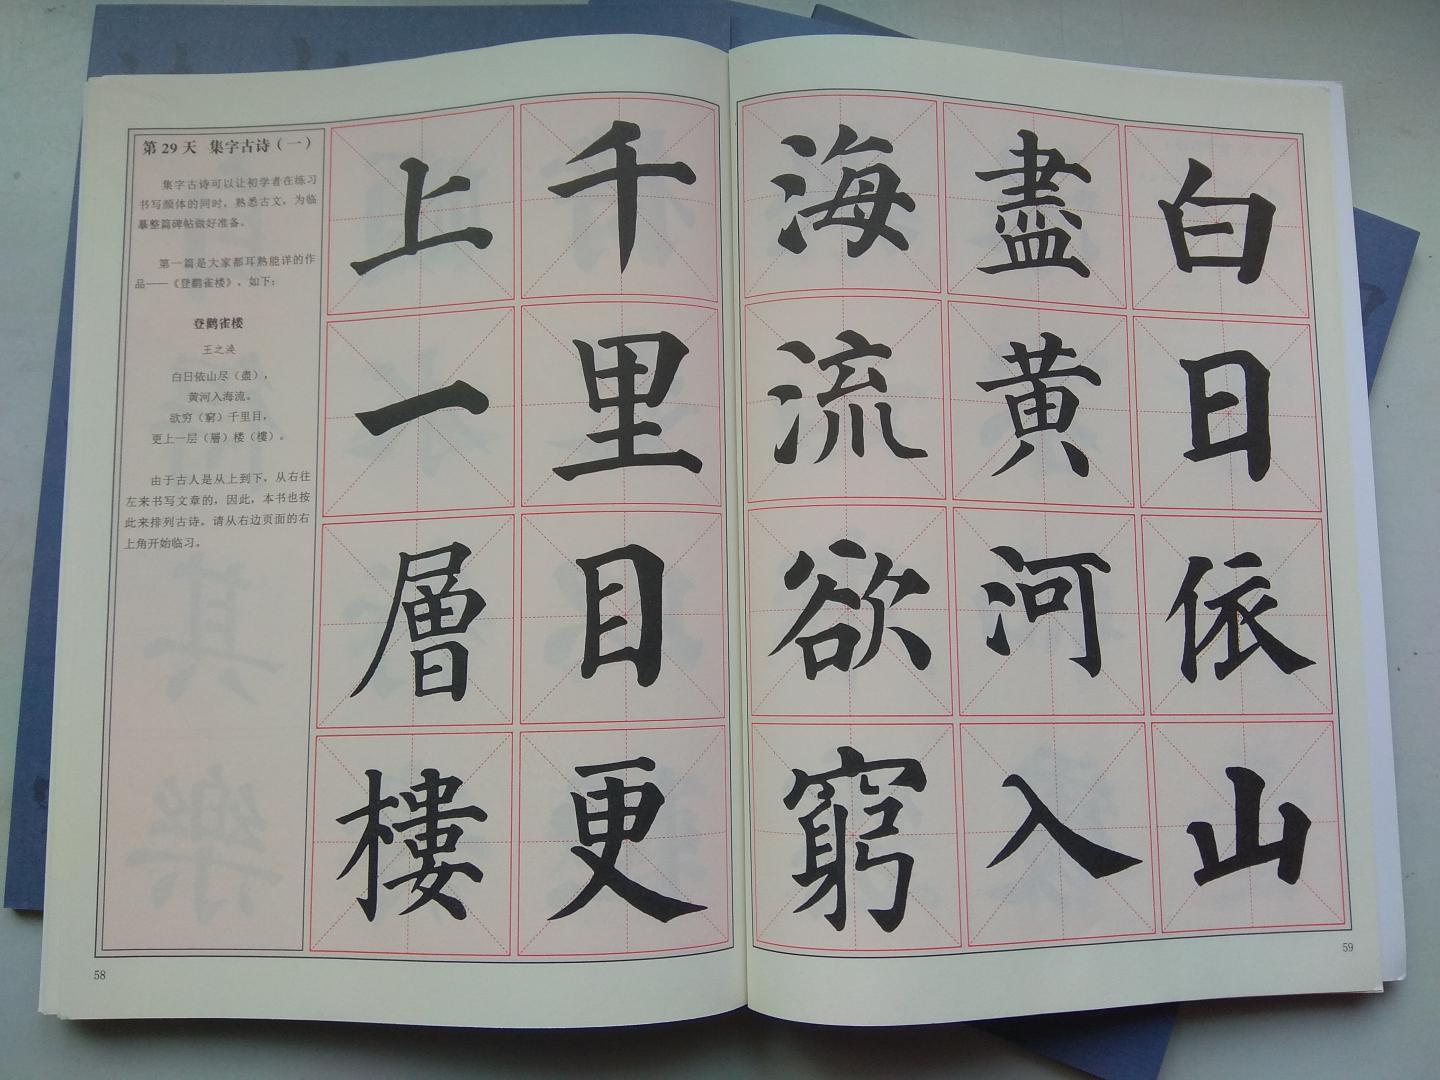 第29天 集字古诗（一）
集字古诗可以让初学者在练习
书写颜体的同时，熟悉古文，为临
摹整篇碑帖做好准备。
第一篇是大家都耳熟能详的作
品——《登鹳雀楼》，如下：
登鹳雀楼
王之涣
白日依山尽（盡），
黄河入海流。
欲穷（窮）千里目，
更上一层（層）楼（樓）。
由于古人是从上到下，从右往
左来书写文章的，因此，本书也按
此来排列古诗。请从右边页面的右
上角开始临习。
白日依山
盡黄河入
海流欲窮
千里目更
上一層樓
58
59